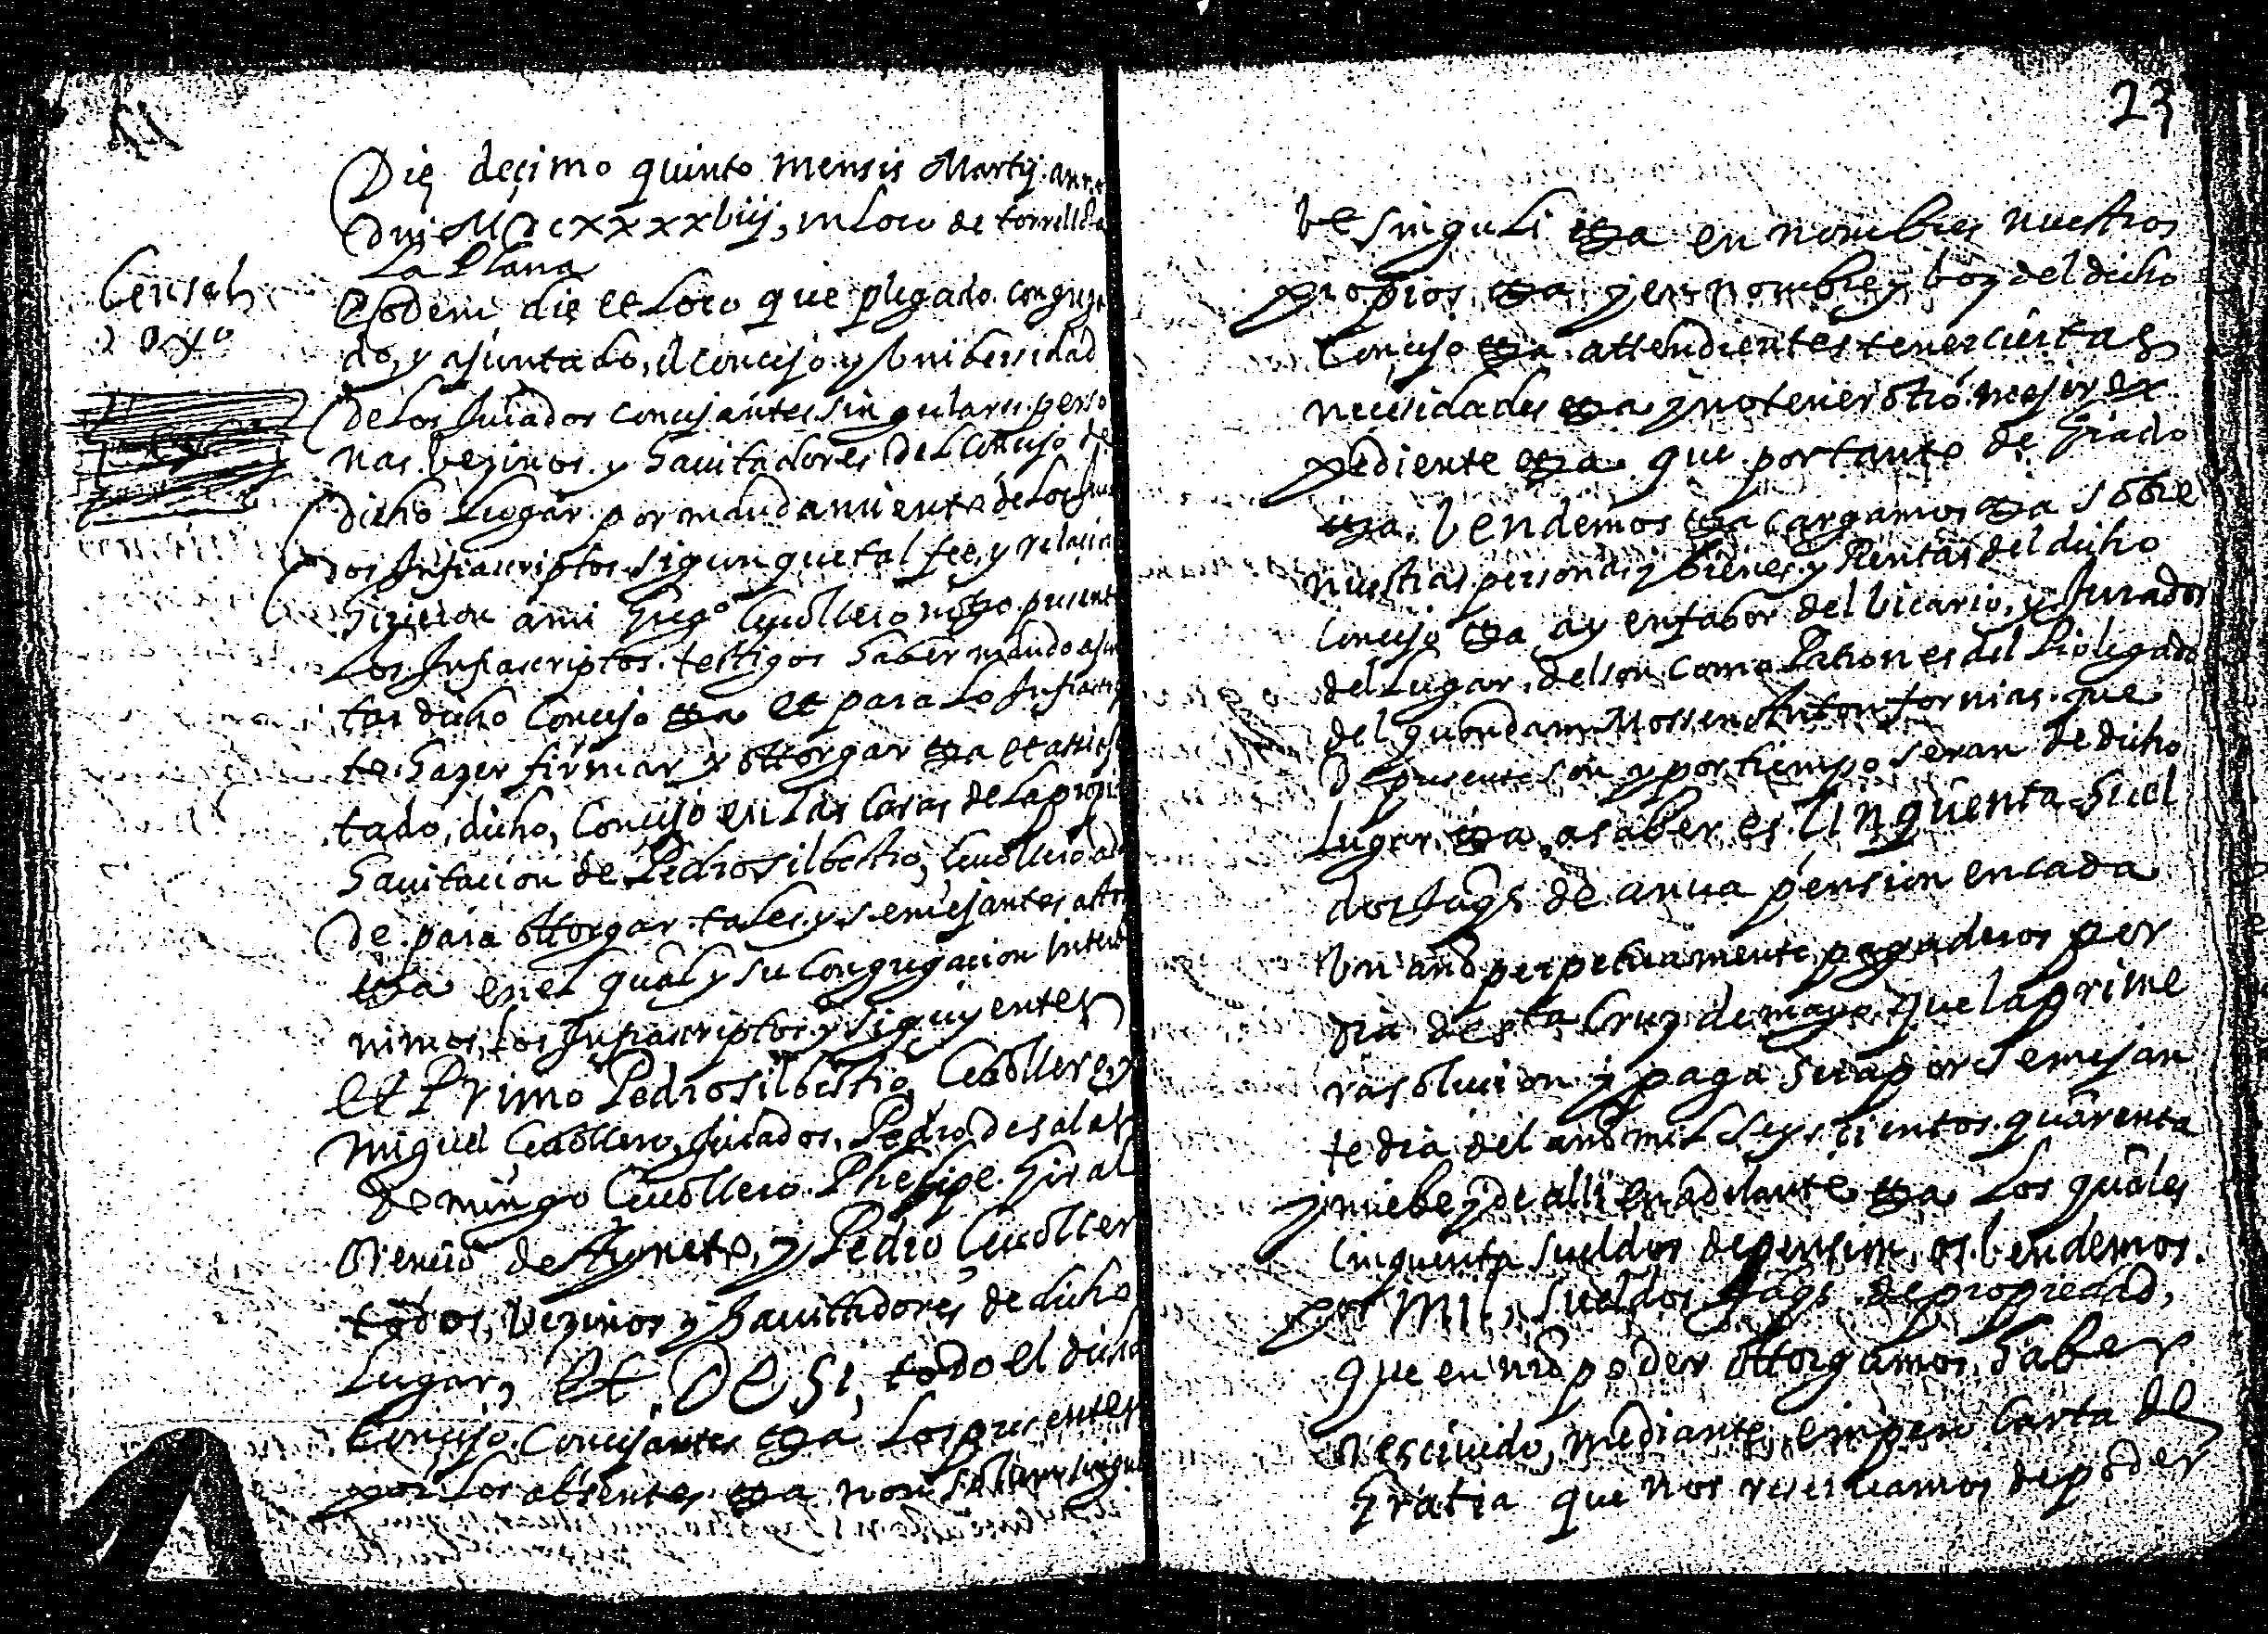 Die deçimo quinto mensis Martij. anno
Dni MDCxxxxbiij, in Loco de torrellola
La Plana
Censal
Eodem die et Loco que plegado congrega
do, y ajuntado, el concejo y Unibersidad
de Los Jurados concejantes singulares perso
nas. bezinos. y Hauitadores del Concejo de
dicho Lugar por mandamiento de Los Jura
dos Infrascriptos. sigun que tal fee, y relacion
Hizieron ami Hugo Ceuollero nottro presente
Los Infrascriptos. testigos Haber mandado ajun
tar dicho Concejo etta et para Lo Infrascrip
to. Hazer firmar y ottorgar etta et atties
tado, dicho, Concejo en Las Casas de La propia
Hauitacion de Pedro silbestro, Ceuollero ado
de para ottorgar. tales y semejantes. actos
etta en el qual y su Congregacion Interbe
nimos, Los Infrascriptos y siguyentes
et Primo Pedro silbestro, Ceuollero, y
Miguel Ceuollero, Jurados, Pedro desalas
Domingo Ceuollero. Phelipe. Giral
Orencio de Azoneto, y Pedro Ceuoller
todos, bezinos y Hauittadores de dicho
Lugar, et DE SI, todo el dicho
Concejo. Concejantes etta Los presentes
por Los absentes. etta non Solum singu
23
be singuli etta en nombres nuestros
propios etta y en nombre y boz del dicho
Concejo etta attendientes tener ciertas
necesidades etta y no tener otro mejor ex
pediente etta que por tanto de Grado
etta. bendemos etta cargamos etta sobre
nuestras personas y bienes y Rentas del dicho
Concejo etta ay en fabor del bicario, y Jurados
del Lugar, delson Como Patrones del Piolegado
del quondam Mossen Anton fornias. que
de presente son y por tiempo seran de dicho
Lugar etta, a saber es. Cinquenta Suel
dos Jaqs de anua pension en cada
Un año perpetuamente pagaderos por
dia de sta Cruz de mayo. que la prime
ra solucion y paga sera por semejan
te dia del año mil Seyscientos. quarenta
y nuebe y de alli en adelante etta Los quales
Cinquenta sueldos de pension, os. bendemos.
por Mil, sueldos Jaqs. de propiedad,
que en nro poder ottorgamos, Haber
rescivido, mediante, empero Carta de
Gratia que nos reseruamos de poder